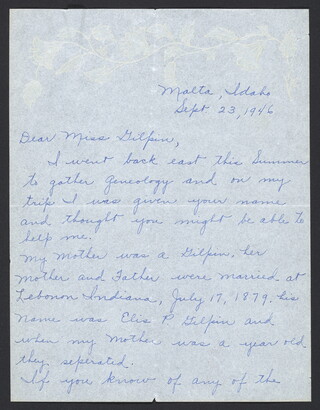 Malta, Idaho
Sept 23, 1946
Dear Miss Gilpin,
I went back east this Summer
to gather geneology and on my
trip I was given your name
and thought you might be able to
help me.
My Mother was a Gilpin. her
Mother and Father were married at
Lebonon Indiana, July 17, 1879. his
name was Elis P Gilpin and
when my Mother was a year old
they seperated.
If you know of any of the